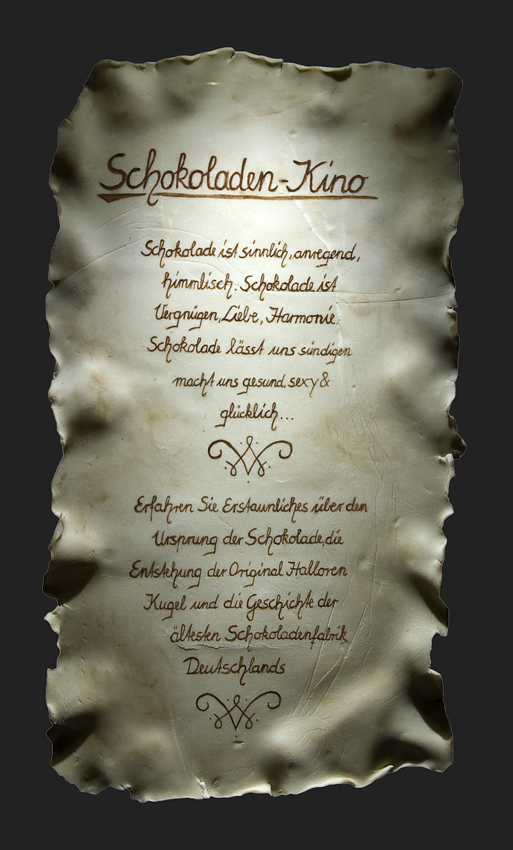 Schokoladen-Kino
Schokolade ist sinnlich, anregend,
himmlisch. Schokolade ist
Vergnügen, Liebe, Harmonie.
Schokolade lässt uns sündigen
macht uns gesund, sexy &
glücklich...
Erfahren Sie Erstaunliches über den
Ursprung der Schokolade, die
Entstehung der Original Halloren
Kugel und die Geschichte der
ältesten Schokoladenfabrik
Deutschlands